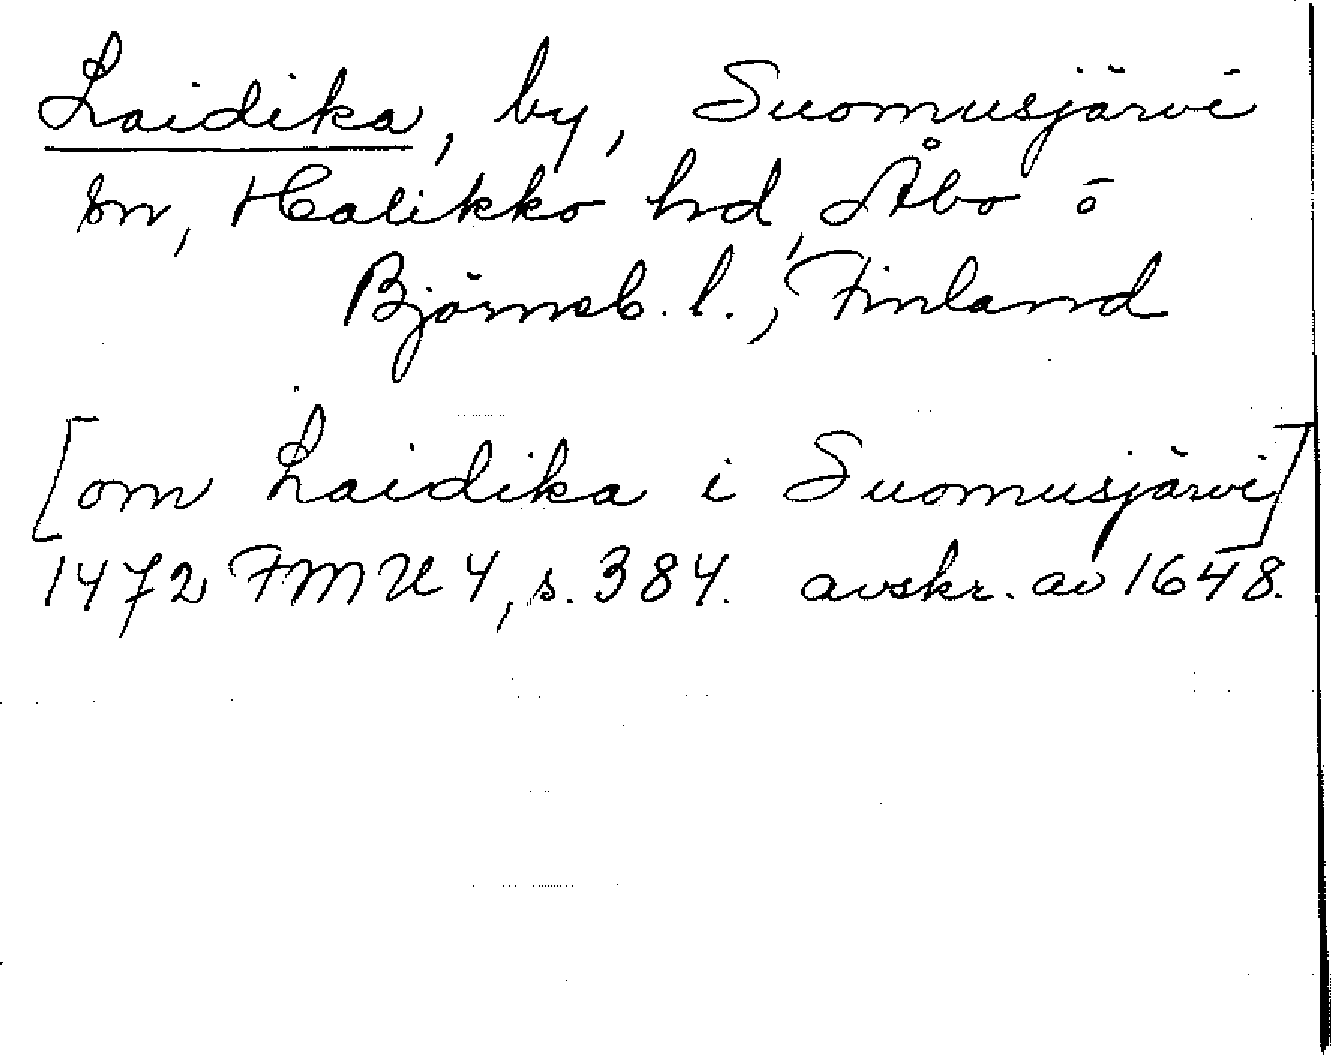 Laidika, by, Suomusjärvi
sn, Halikko hd, Åbo o
Björneb. l., Finland
[om Laidika i Suomusjärvi]
1472 FMU 4, s. 384. avskr. av 1648.